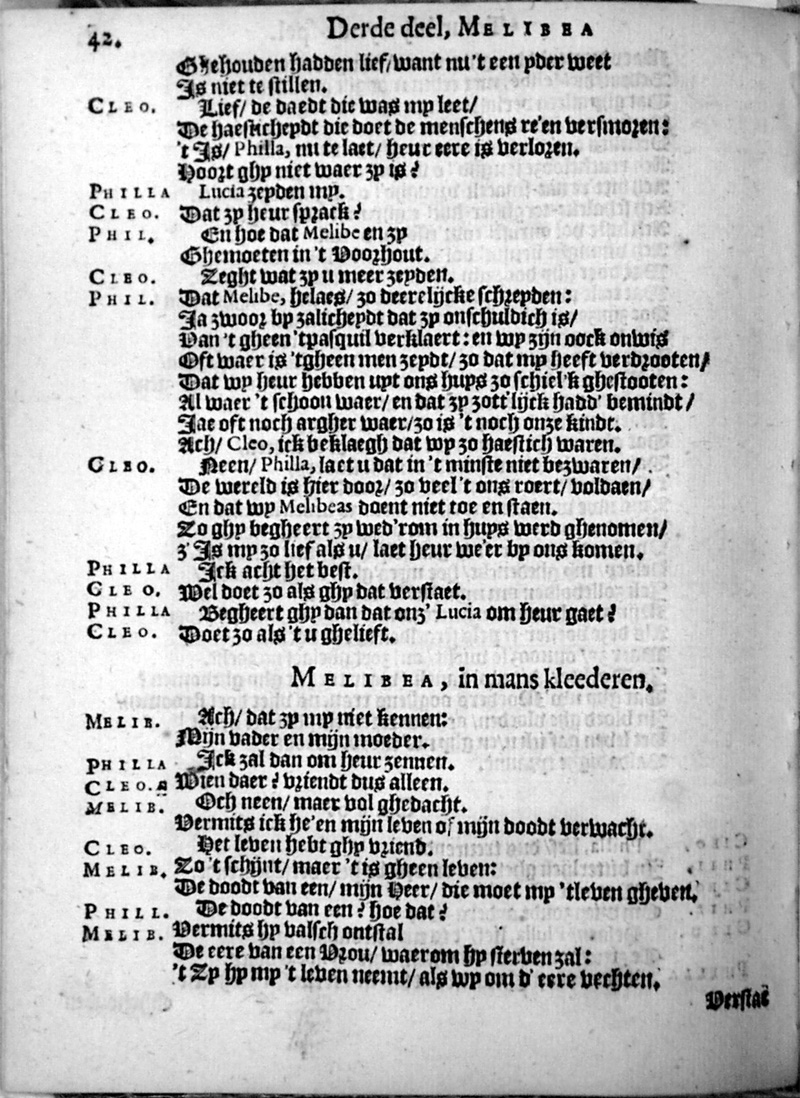 42. Derde deel, MELIBEA
Ghehouden hadden lief/want nu't een yder weet
Is niet te stillen.
CLEO. Lief/ de daedt die was my leet/
De haesticheydt die doet de menschens re'en versmoren:
't Is/ Philla, nu te laet/ heur eere is verloren.
Hoort ghy niet waer zy is?
PHILLA Lucia zeyden my.
CLEO. Dat zy heur sprack?
PHIL. En hoe dat Melibe en zy
Ghemoeten in 't Voorhout.
CLEO. Zeght wat zy u meer zeyden.
PHIL. Dat Melibe, helaes/ zo deerelijcke schreyden:
Ja zwoor by zalicheydt dat zy onschuldich is/
Van 't gheen 'tpasquil verklaert: en wy zijn oock onwis
Oft waer is 'tgheen men zeydt/ zo dat my heeft verdrooten/
Dat wy heur hebben uyt ons huys zo schiel'k ghestooten:
Al waer 't schoon waer/ en dat zy zott'lijck hadd' bemindt/
Jae oft noch argher waer/zo is 't noch onze kindt.
Ach/ Cleo, ick beklaegh dat wy zo haestich waren.
CLEO. Neen/ Philla, laet u dat in 't minste niet bezwaren/
De wereld is hier door/ zo veel 't ons roert/ voldaen/
En dat wy Melibeas doent niet toe en staen.
Zo ghy begheert zy wed'rom in huys werd ghenomen/
z' Is my zo lief als u/ laet heur we'er by ons komen.
PHILLA Ick acht het best.
CLEO. Wel doet zo als ghy dat verstaet.
PHILLA Begheert ghy dan dat onz' Lucia om heur gaet?
CLEO. Doet zo als 't u ghelieft.
MELIBEA, in mans kleederen.
MELIB. Ach/ dat zy my niet kennen:
Mijn vader en mijn moeder.
PHILLA Ick zal dan om heur zennen.
CLEO. Wien daer? vriendt dus alleen.
MELIB. Och neen/ maer vol ghedacht.
Vermits ick he'en mijn leven of mijn doodt verwacht.
CLEO. Het leven hebt ghy vriend.
MELIB. Zo 't schijnt/ maer 't is gheen leven:
De doodt van een/ mijn Heer/ die moet my 'tleven gheven.
PHILL. De doodt van een? hoe dat?
MELIB. Vermits hy valsch ontstal
De eere van een Vrou/ waerom hy sterven zal:
't Zy hy my 't leven neemt/ als wy om d' eere vechten.
Verstaet